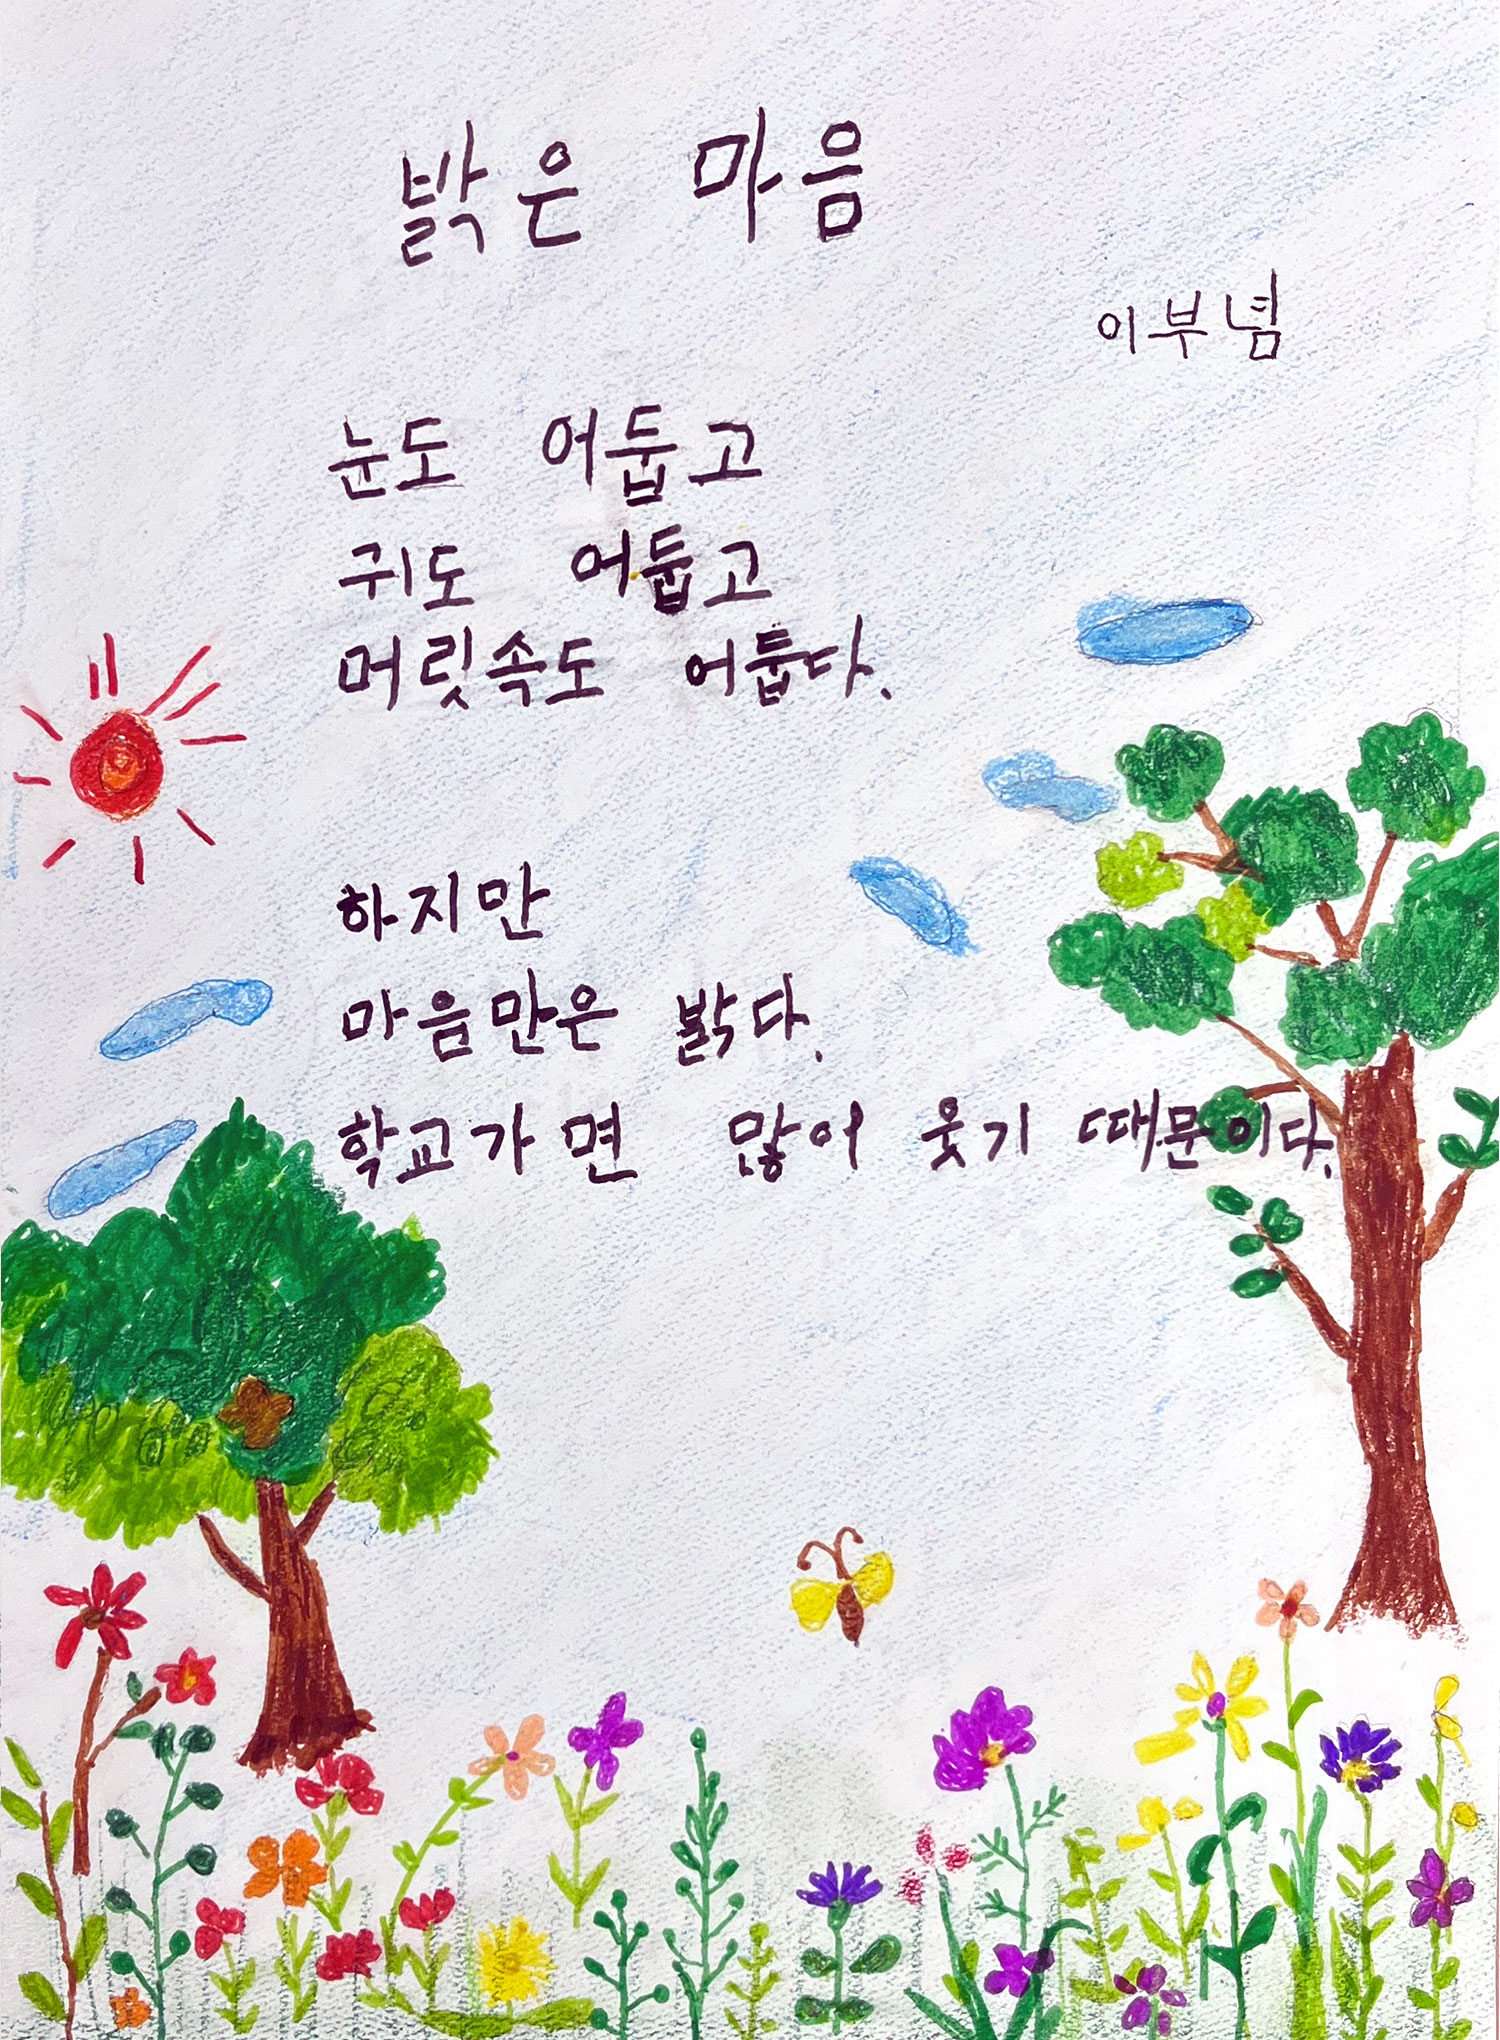 밝은 마음
이부념
눈도 어둡고
귀도 어둡고
머릿속도 어둡다.
하지만
마음만은 밝다.
학교가면 많이 웃기 때문이다.